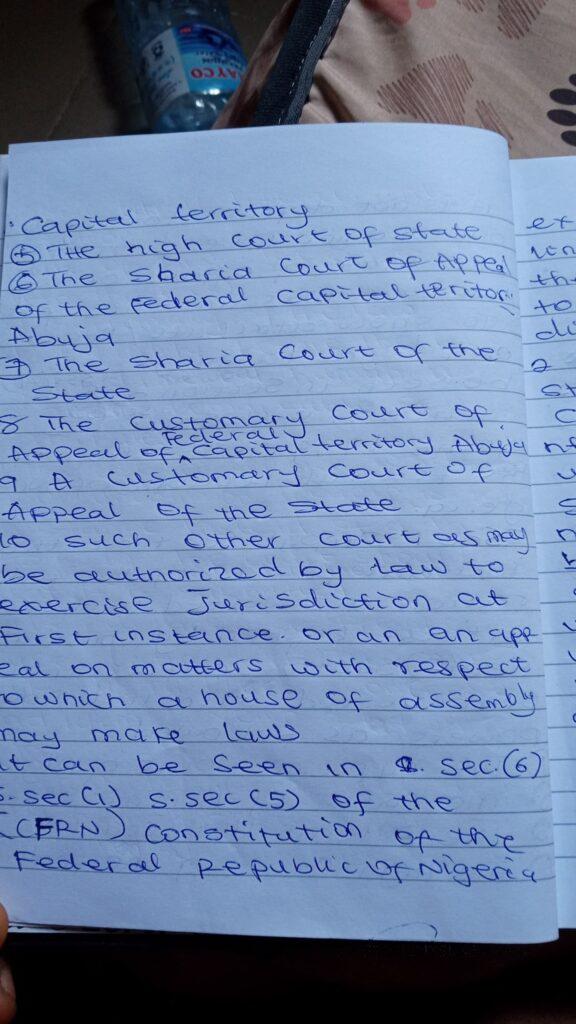 AYCO
Capital territory
⑤ THE high Court of state
⑥ The Sharia Court of Appeal
of the Federal Capital teritor
Abuja
⑦ The Sharia Court of the
State
8 The Customary Court of
Appeal of Federal Capital territory Abuja
9 A Customary Court of
Appeal of the State
10 such other court as may
be authorized by law to
exercise Jurisdiction at
First instance. or an an app
eal on matters with respect
to which a house of assembly
may make laws
it can be seen in sec.(6)
s.sec(1) s.sec(5) of the
(CFRN) Constitution of the
Federal Republic of Nigeria
ex
th
to
di
2
st
C